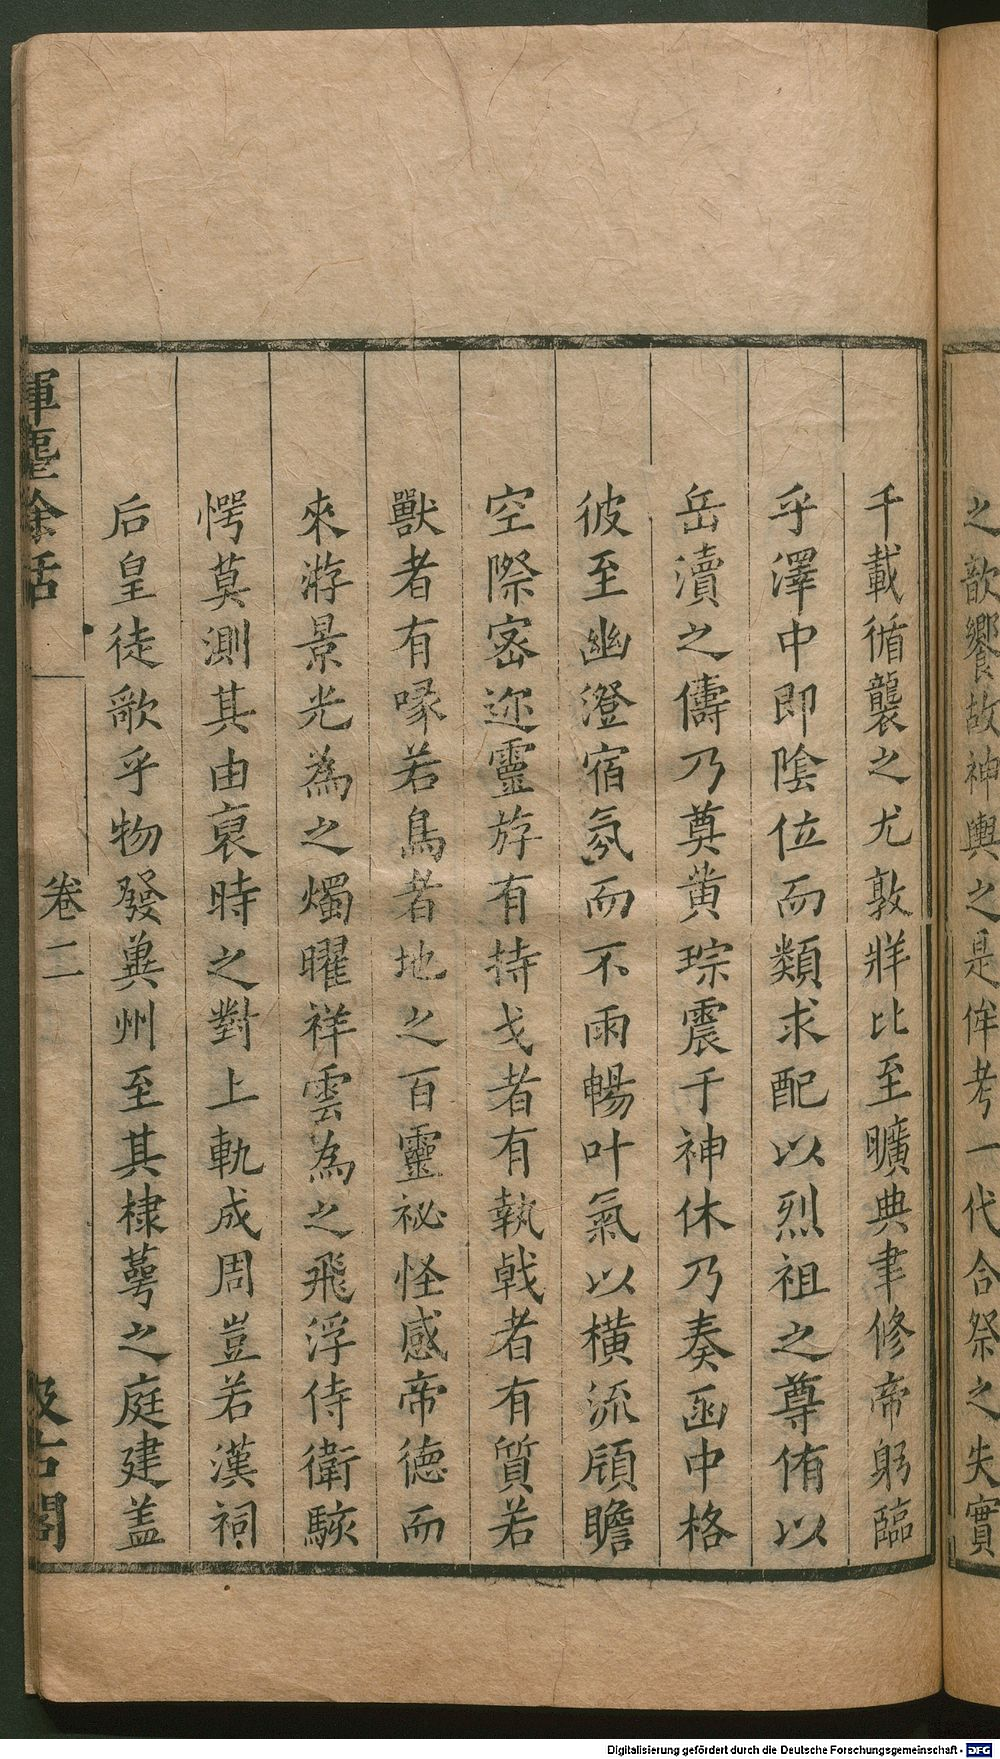 之歆饗故神輿之是侔考一代合祭之失實
千載循襲之尤敦牂比至曠典聿修帝躬臨
乎澤中即陰位而類求配以烈祖之尊侑以
岳瀆之儔乃奠黄琮震于神休乃奏函中格
彼至幽澄宿氛而不雨暢叶氣以横流頎瞻
空際密邇靈斿有持戈者有執戟者有質若
獸者有喙若鳥者地之百靈祕怪感帝德而
來游景光為之燭曜祥雲為之飛浮侍衛駭
愕莫測其由裒時之對上軌成周豈若漢祠
后皇徒歌乎物發兾州至其棣萼之庭建盖
揮麈餘話
卷二
汲古閣
Digitalisierung gefördert durch die Deutsche Forschungsgemeinschaft - DFG